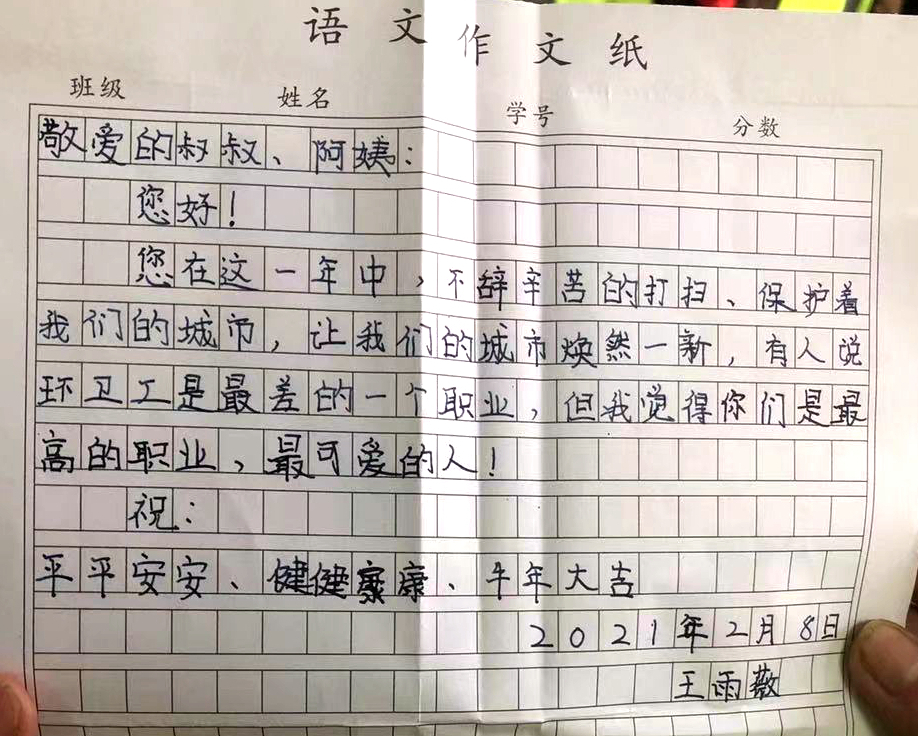 语文作文纸
班级 姓名 学号 分数
敬爱的叔叔、阿姨：
您好！
您在这一年中，不辞辛苦的打扫、保护着
我们的城市，让我们的城市焕然一新，有人说
环卫工是最差的一个职业，但我觉得你们是最
高的职业，最可爱的人！
祝：
平平安安、健健康康、牛年大吉
2021年2月8日
王雨薇